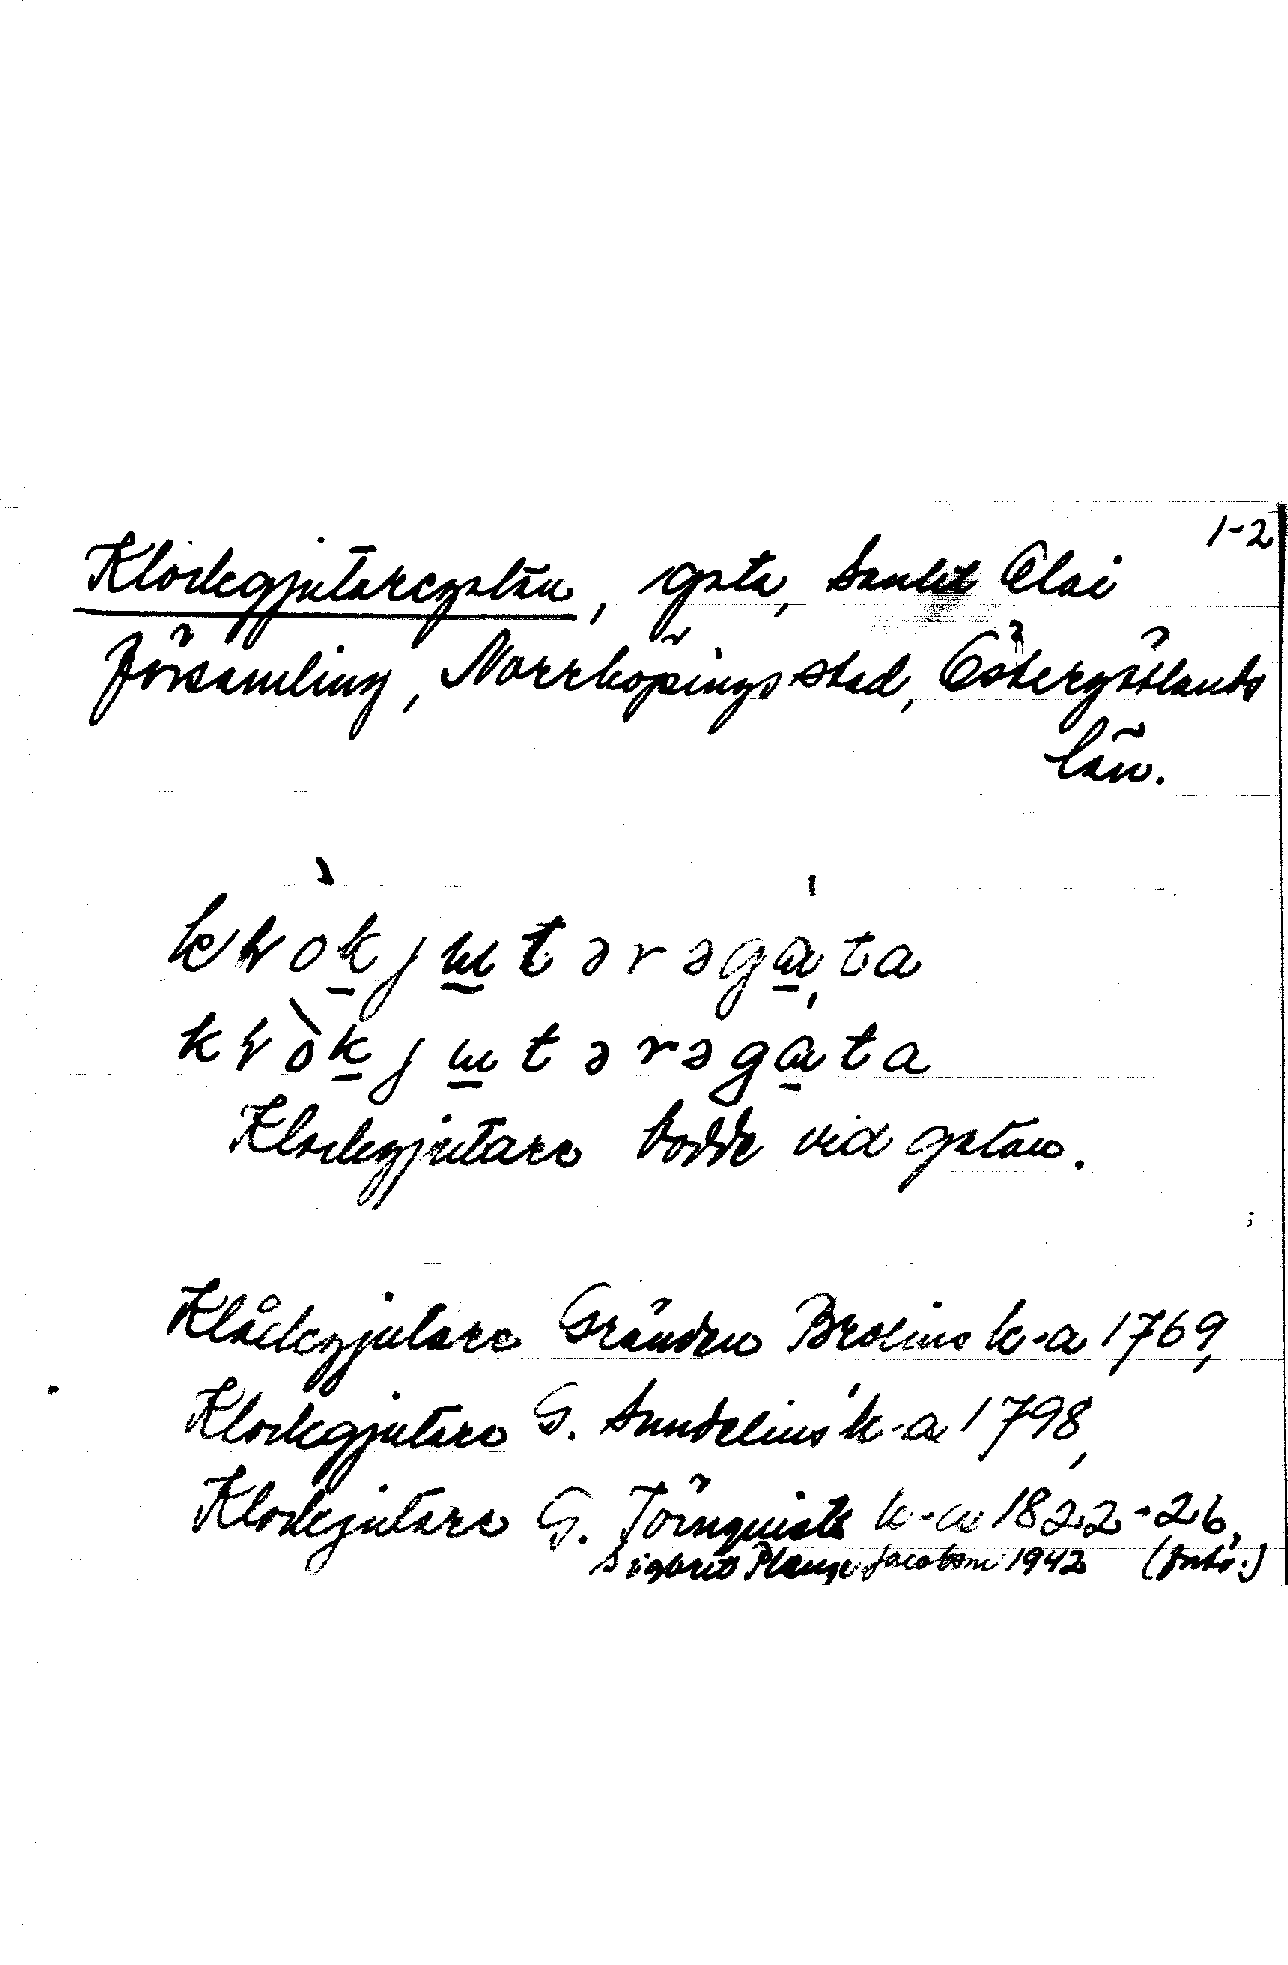 1-2
Klockegjutaregatan, gata, Sankt Olai
församling, Norrköpings stad, Östergötlands
län.
klòkjutərəgàta
klòkjutərəgàta
Klockegjutare bodde vid gatan.
Klåckegjutare Gränden Brolins k-a 1769,
Klockegjutare G. Sundelius' k-a 1798,
Klockejutare G. Törnquists k-a 1822-26,
Jacobson 1942